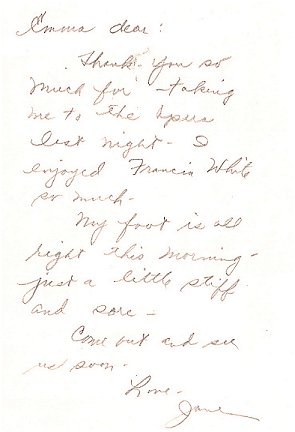 Emma dear:
Thank you so
much for taking
me to the opera
last night - I
enjoyed Francia White
so much -
My foot is all
right this morning -
just a little stiff
and sore -
Come out and see
us soon -
Love -
Jane